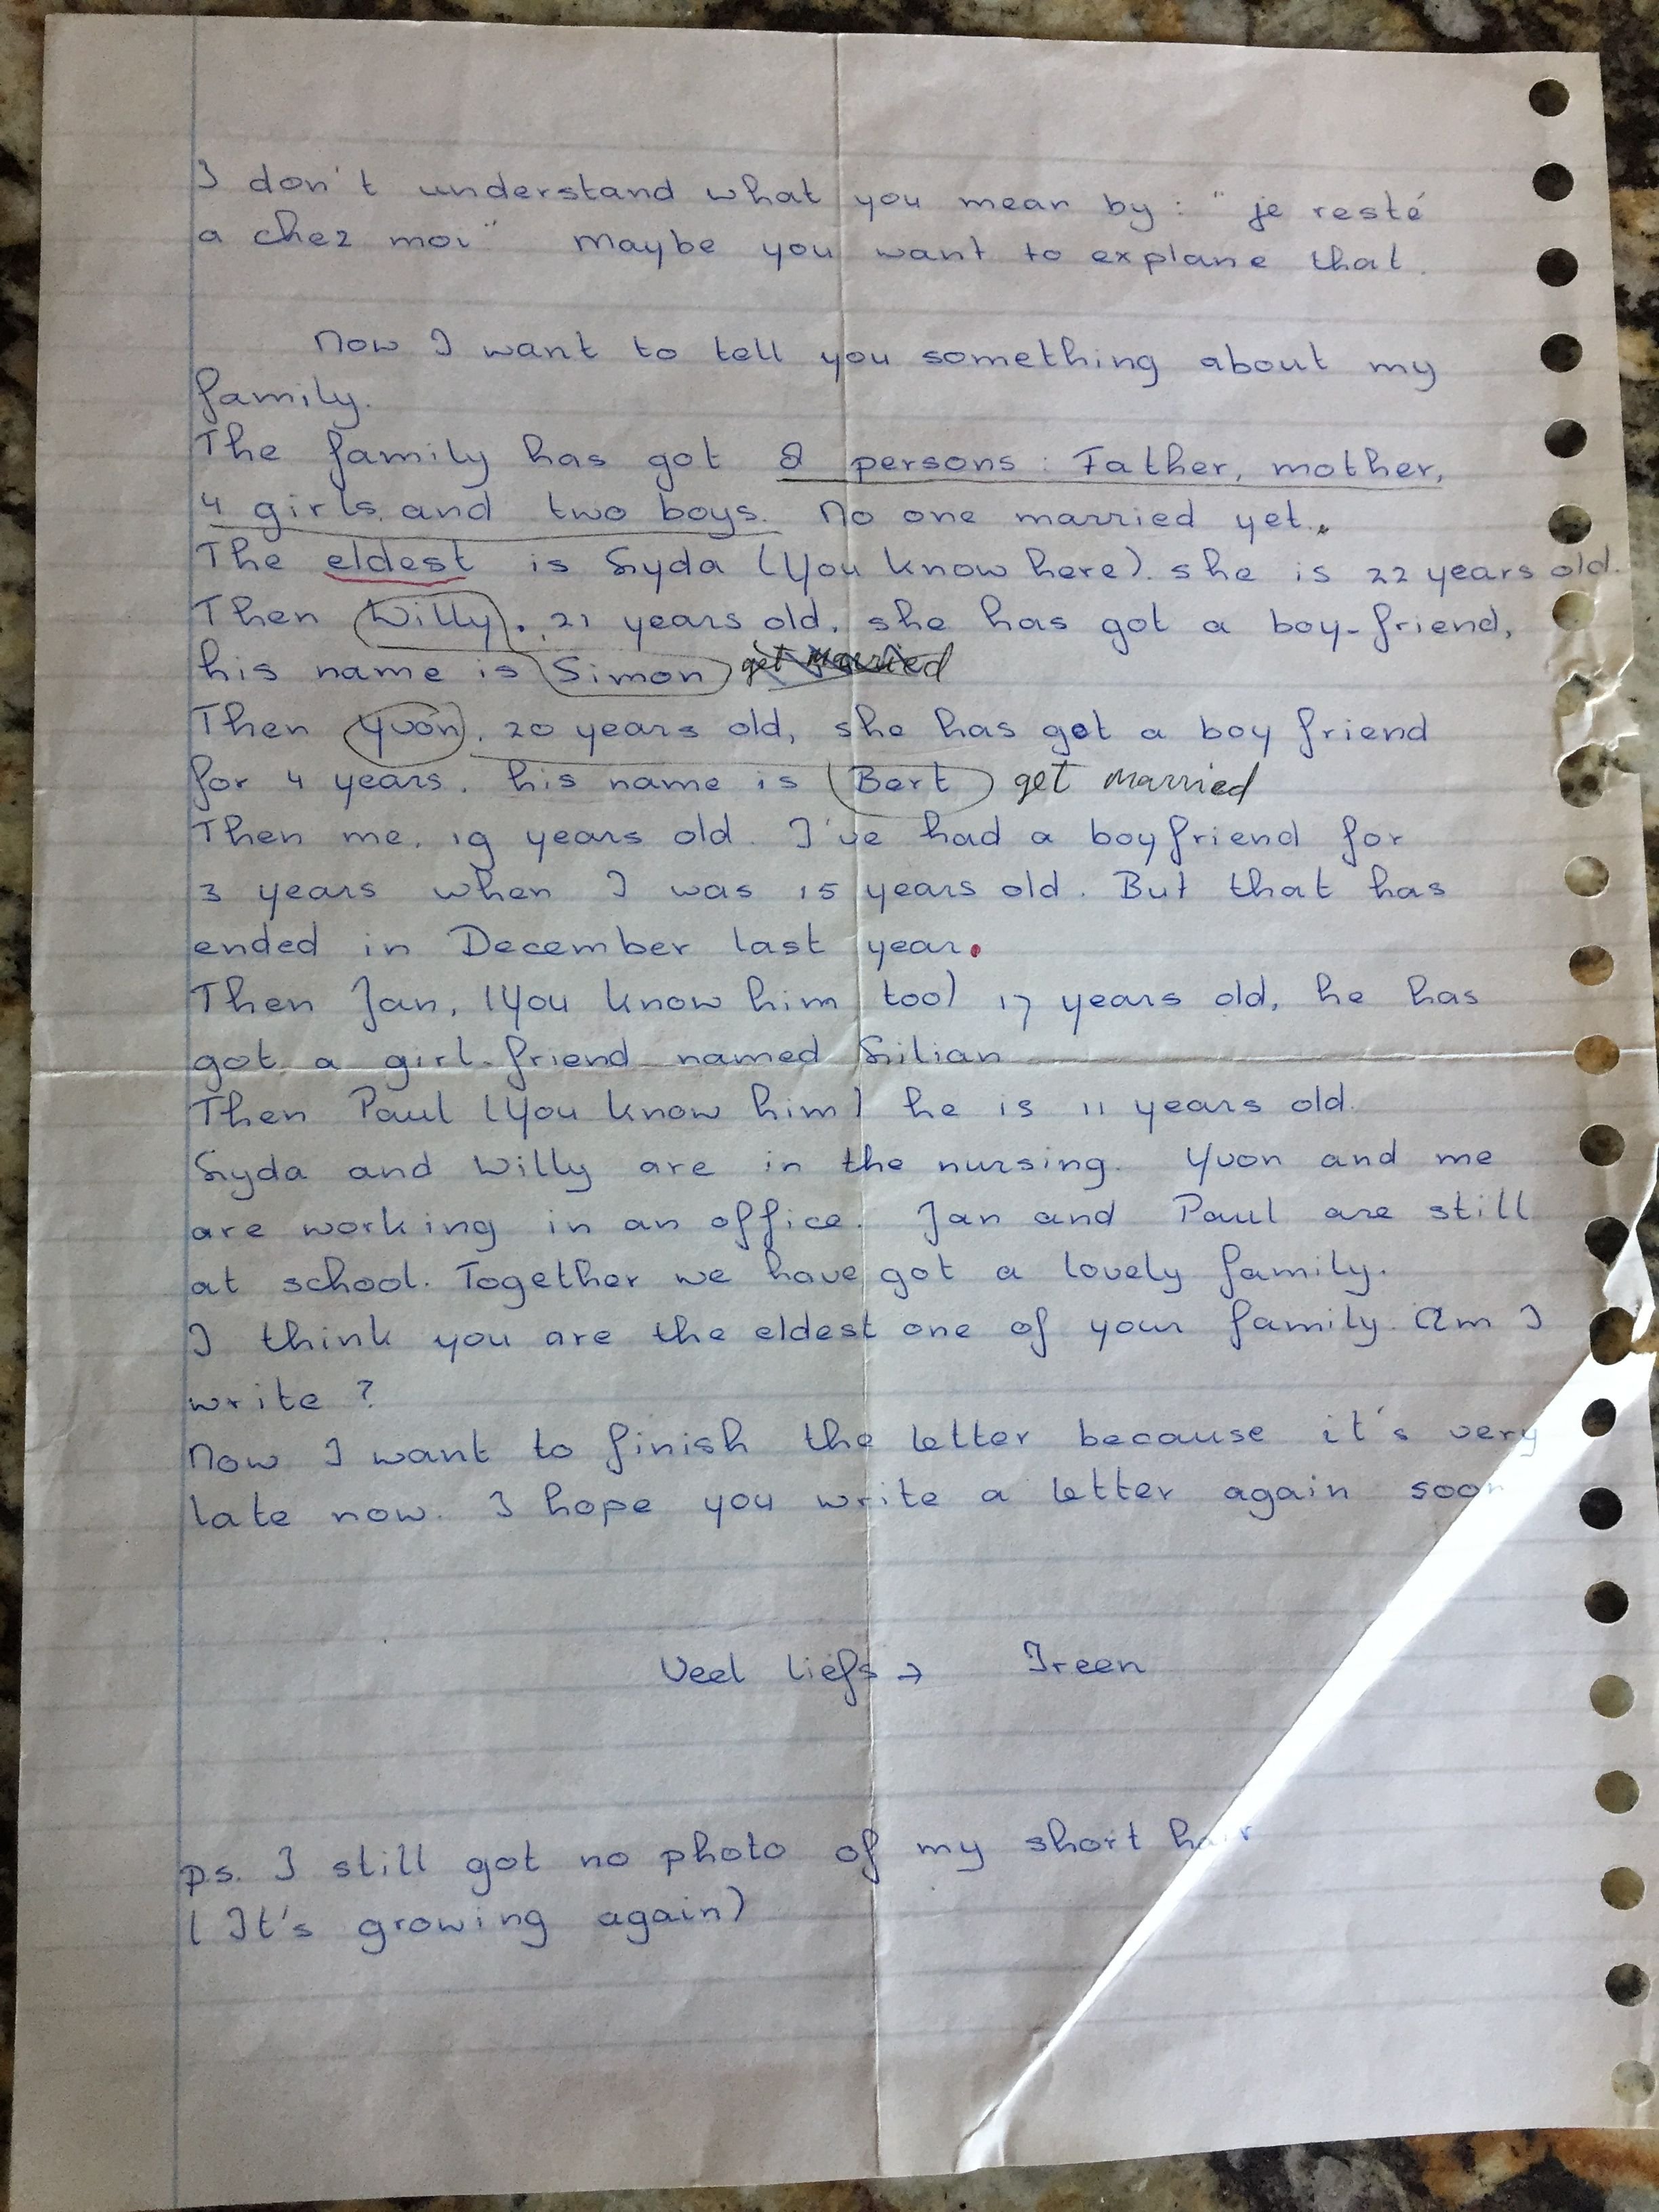 I don't understand what you mean by: "je resté
a chez moi" Maybe you want to explane that.
Now I want to tell you something about my
family.
The family has got 8 persons: Father, mother,
4 girls and two boys. No one married yet.
The eldest is Lyda (You know here). she is 22 years old.
Then Willy, 21 years old, she has got a boy-friend,
his name is Simon get married
Then Yvon, 20 years old, she has got a boy friend
for 4 years. his name is Bert get married
Then me, 19 years old. I've had a boyfriend for
3 years when I was 15 years old. But that has
ended in December last year.
Then Jan, (You know him too) 17 years old, he has
got a girl-friend named Lilian
Then Paul (You know him) he is 11 years old.
Lyda and Willy are in the nursing. Yvon and me
are working in an office. Jan and Paul are still
at school. Together we have got a lovely family.
I think you are the eldest one of your family. Am I
write?
Now I want to finish the letter because it's very
late now. I hope you write a letter again soon
Veel liefs → Ireen
ps. I still got no photo of my short hair
(It's growing again)